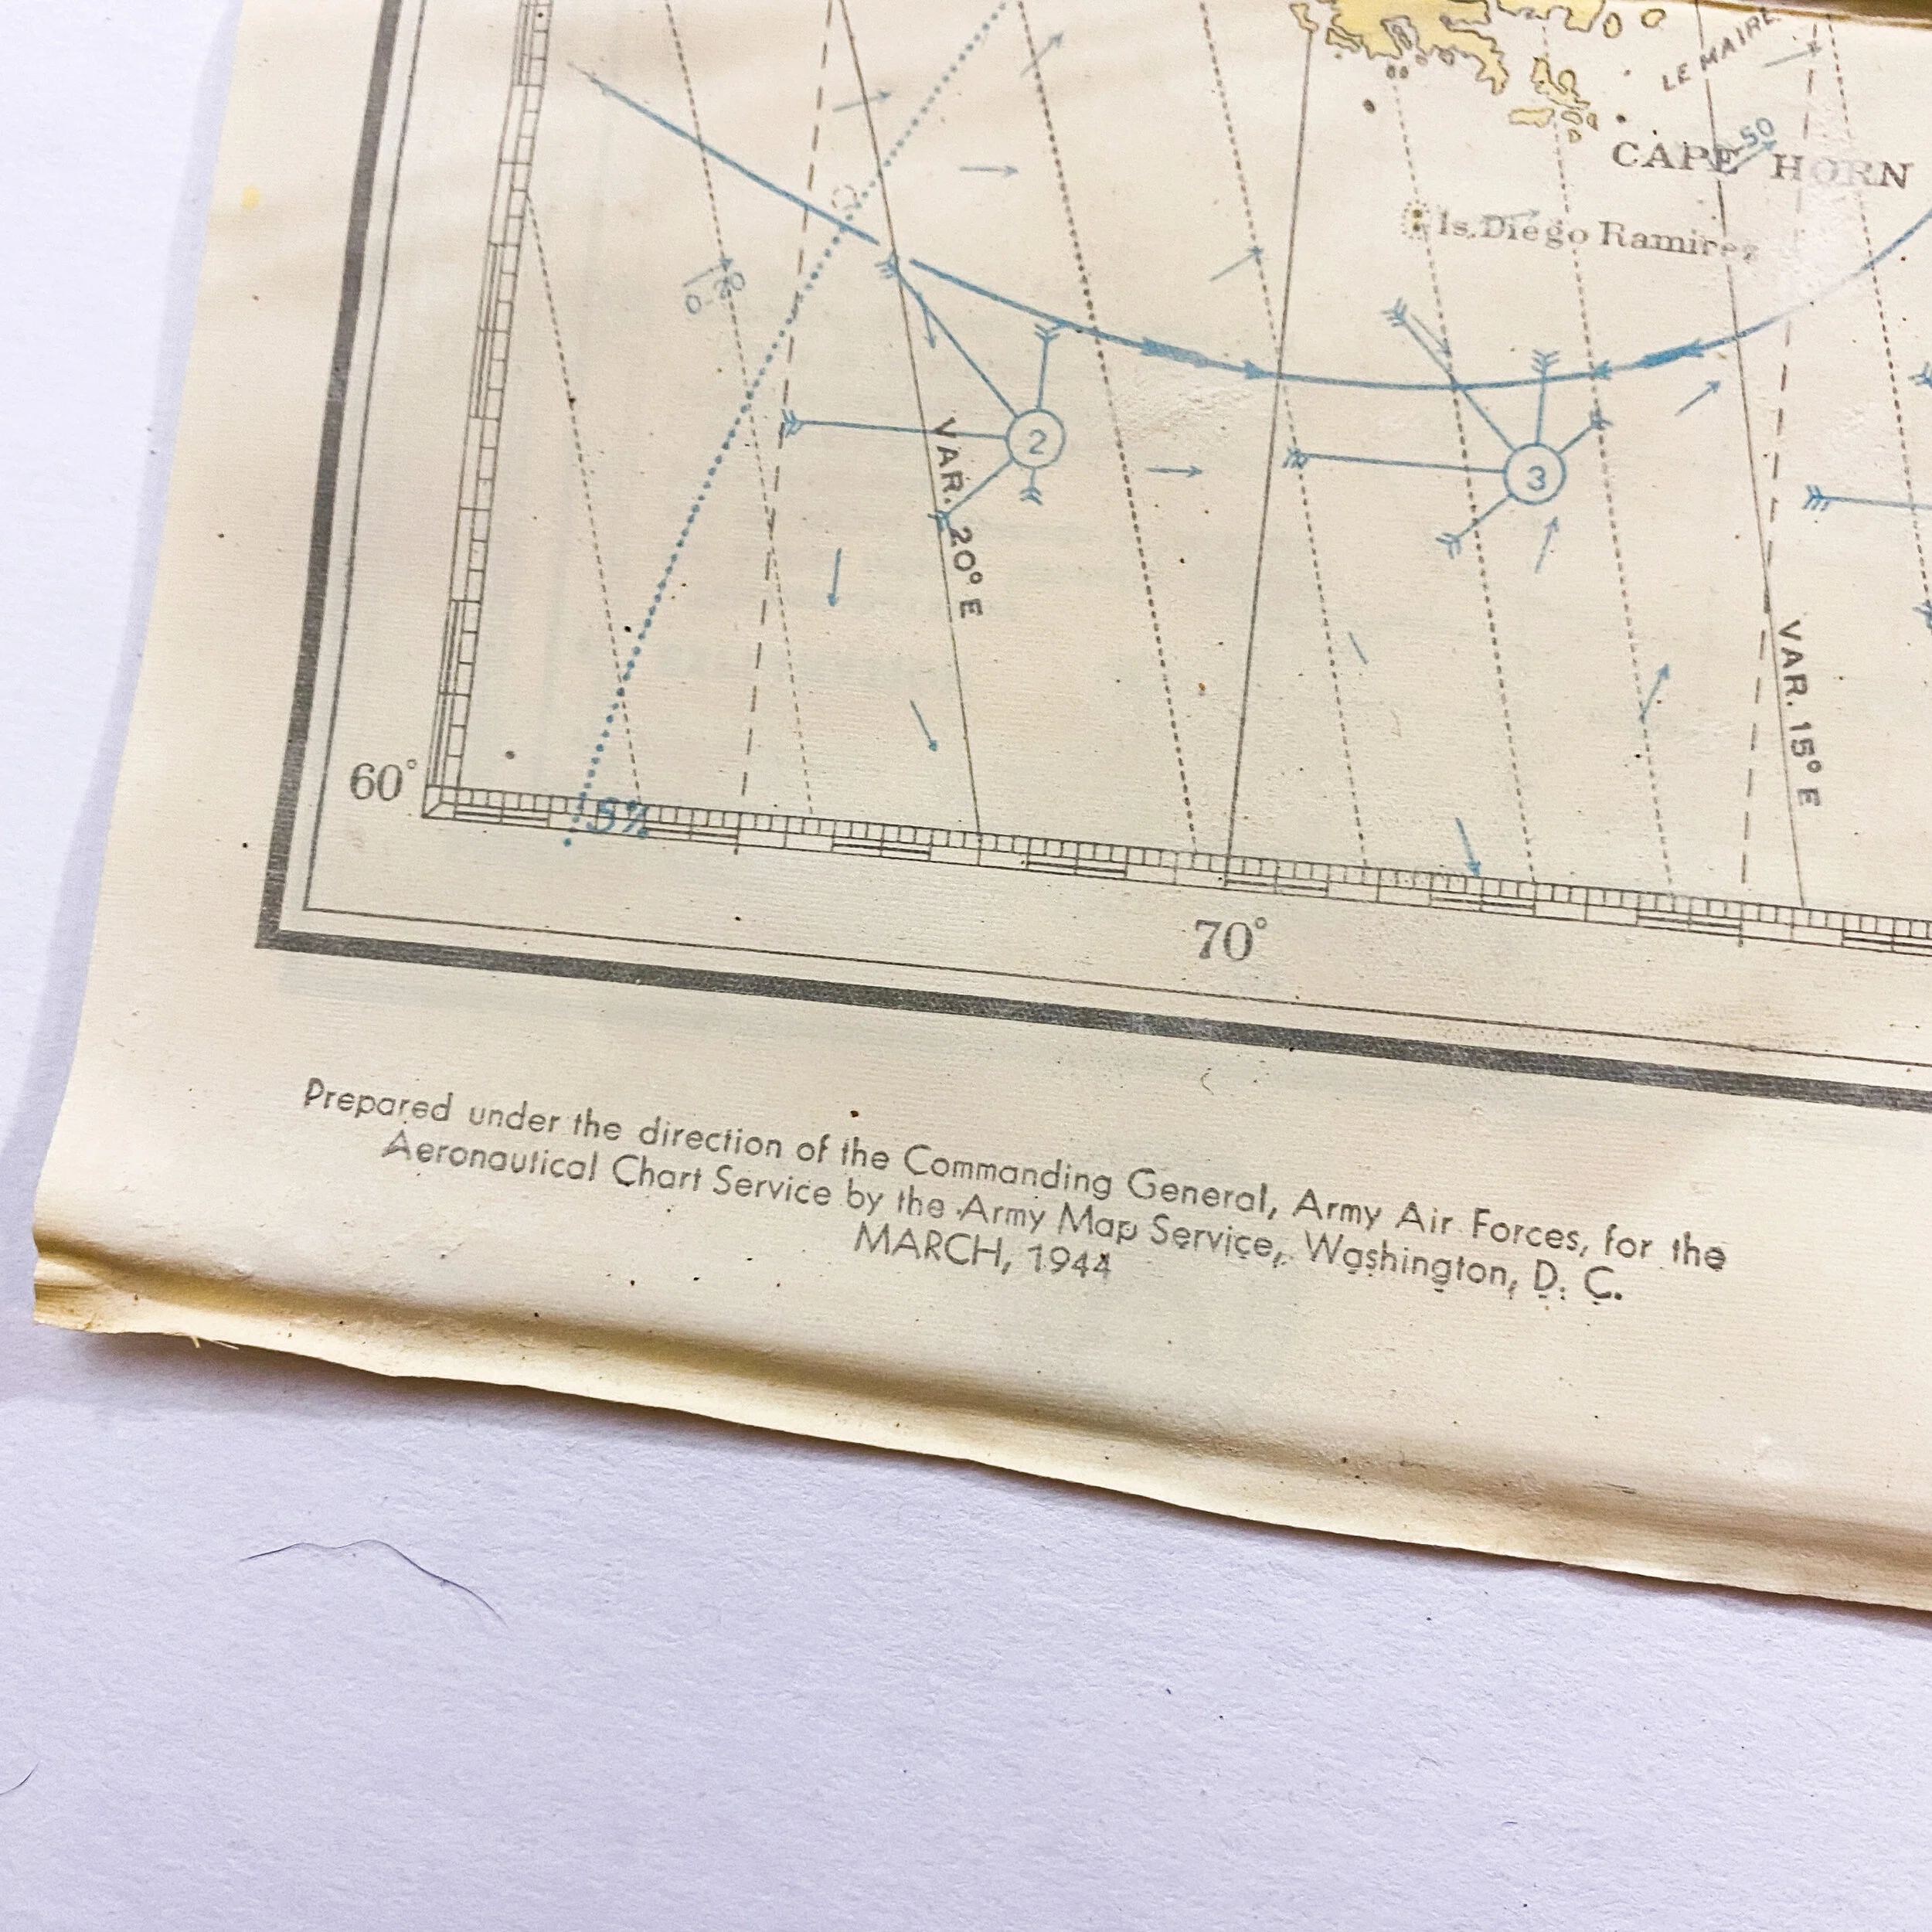 LE MAIRE
50
CAPE HORN
Is. Diego Ramirez
2
3
VAR. 20° E
VAR. 15° E
60°
5%
70°
Prepared under the direction of the Commanding General, Army Air Forces, for the
Aeronautical Chart Service by the Army Map Service, Washington, D. C.
MARCH, 1944